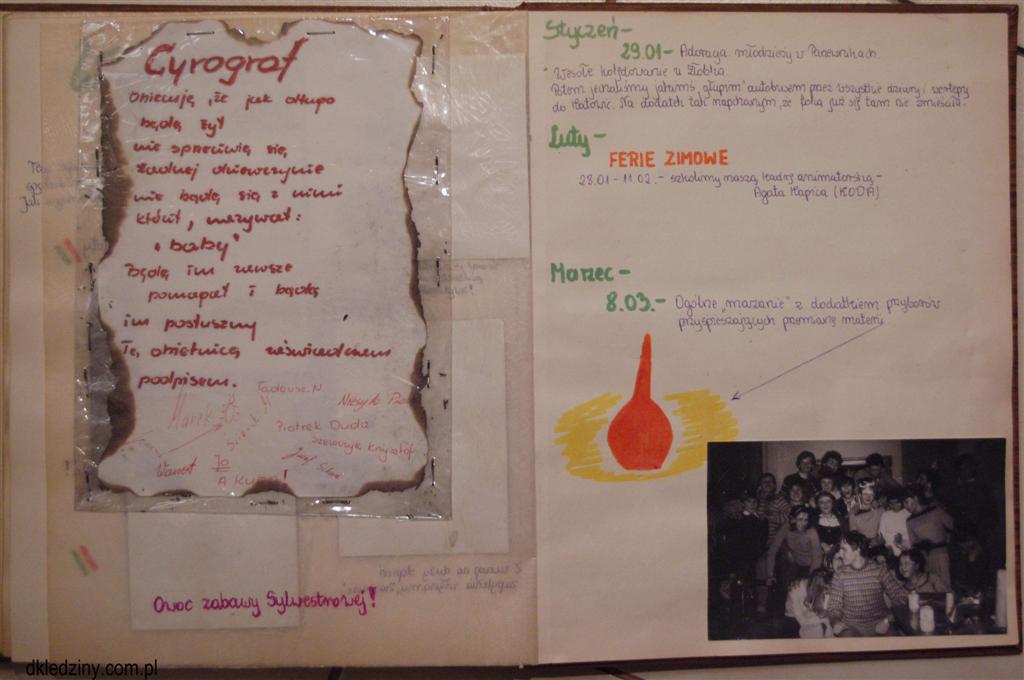 Cyrograf
że jak długo
będę żył
nie sprzeciwię się
żadnej dziewczynie
nie będę się z nimi
kłócił, nazywał:
"baby"
Będę im zawsze
pomagał i będę
im posłuszny
Tę obietnicę
podpisem.
Tadeusz N.
Marek
Piotrek Duda
Szewczyk Krzysztof
Józef
Ja
Owoc zabawy Sylwestrowej!
Styczeń -
29.01 - Adoracja młodzieży w
Wesołe kolędowanie u Żłobka
Potem jechaliśmy jakimś "głupim" autobusem przez wszystkie dziury i występy
do Katowic. Na dodatek tak napchanym, że folia już się tam nie zmieściła.
Luty -
FERIE ZIMOWE
28.01 - 11.02. - szkolimy naszą kadrę animatorską -
Agata Kapica (KODA)
Marzec -
8.03. - Ogólne "mazanie" z dodatkiem przyborów
przyspieszających przemianę materii
dkledziny.com.pl